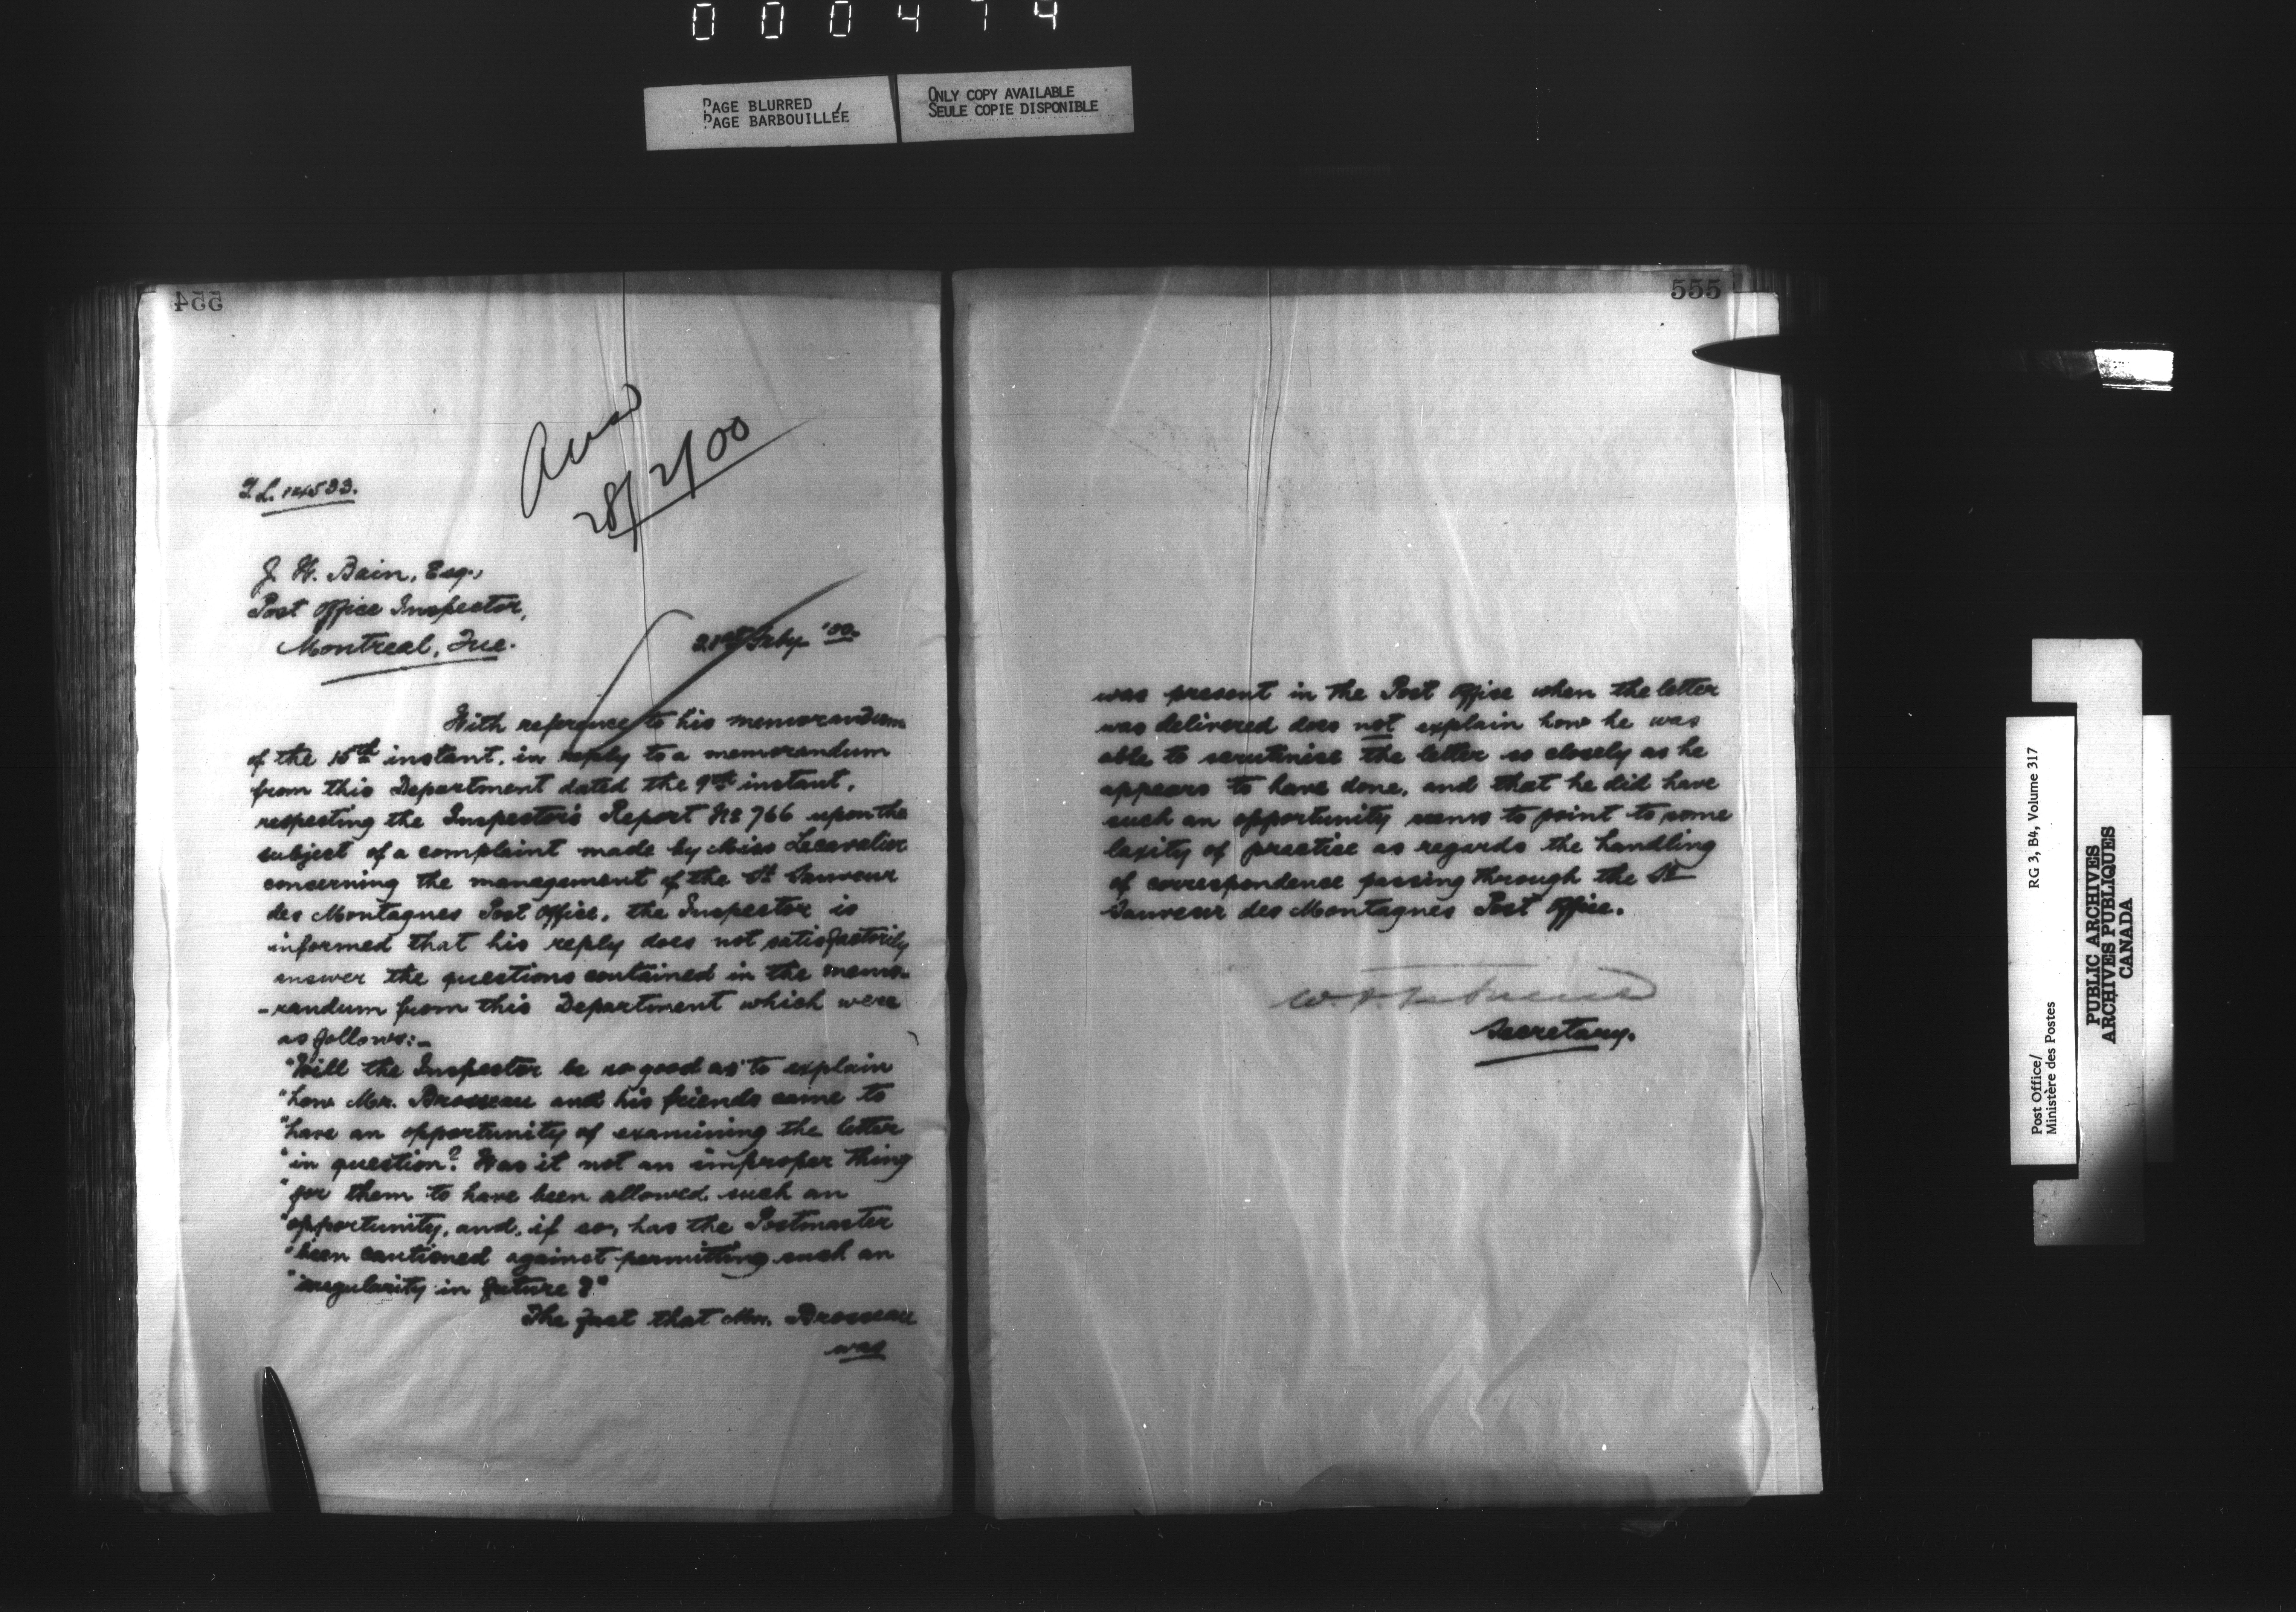 000474
PAGE BLURRED
PAGE BARBOUILLÉE
ONLY COPY AVAILABLE
SEULE COPIE DISPONIBLE
554
28/2/00
J. H. Bain, Esq.,
Post Office Inspector,
Montreal, Que.
21st Feby '00.
With reference to his memorandum
of the 15th instant, in reply to a memorandum
from this Department dated the 9th instant,
respecting the Inspector's Report No 766 upon the
subject of a complaint made by Miss Lecavalier
concerning the management of the St Sauveur
des Montagnes Post Office, the Inspector is
informed that his reply does not satisfactorily
answer the questions contained in the memo-
-randum from this Department which were
as follows:-
"Will the Inspector be so good as to explain
"how Mr. Brosseau and his friends came to
"have an opportunity of examining the letter
"in question? Was it not an improper thing
"for them to have been allowed such an
"opportunity, and, if so, has the Postmaster
"been cautioned against permitting such an
"irregularity in future?"
The fact that Mr. Brosseau
was
555
was present in the Post Office when the letter
was delivered does not explain how he was
able to scrutinise the letter so closely as he
appears to have done, and that he did have
such an opportunity seems to point to some
laxity of practice as regards the handling
of correspondence passing through the St
Sauveur des Montagnes Post Office.
Secretary.
Post Office/
Ministère des Postes
RG 3, B4, Volume 317
PUBLIC ARCHIVES
ARCHIVES PUBLIQUES
CANADA